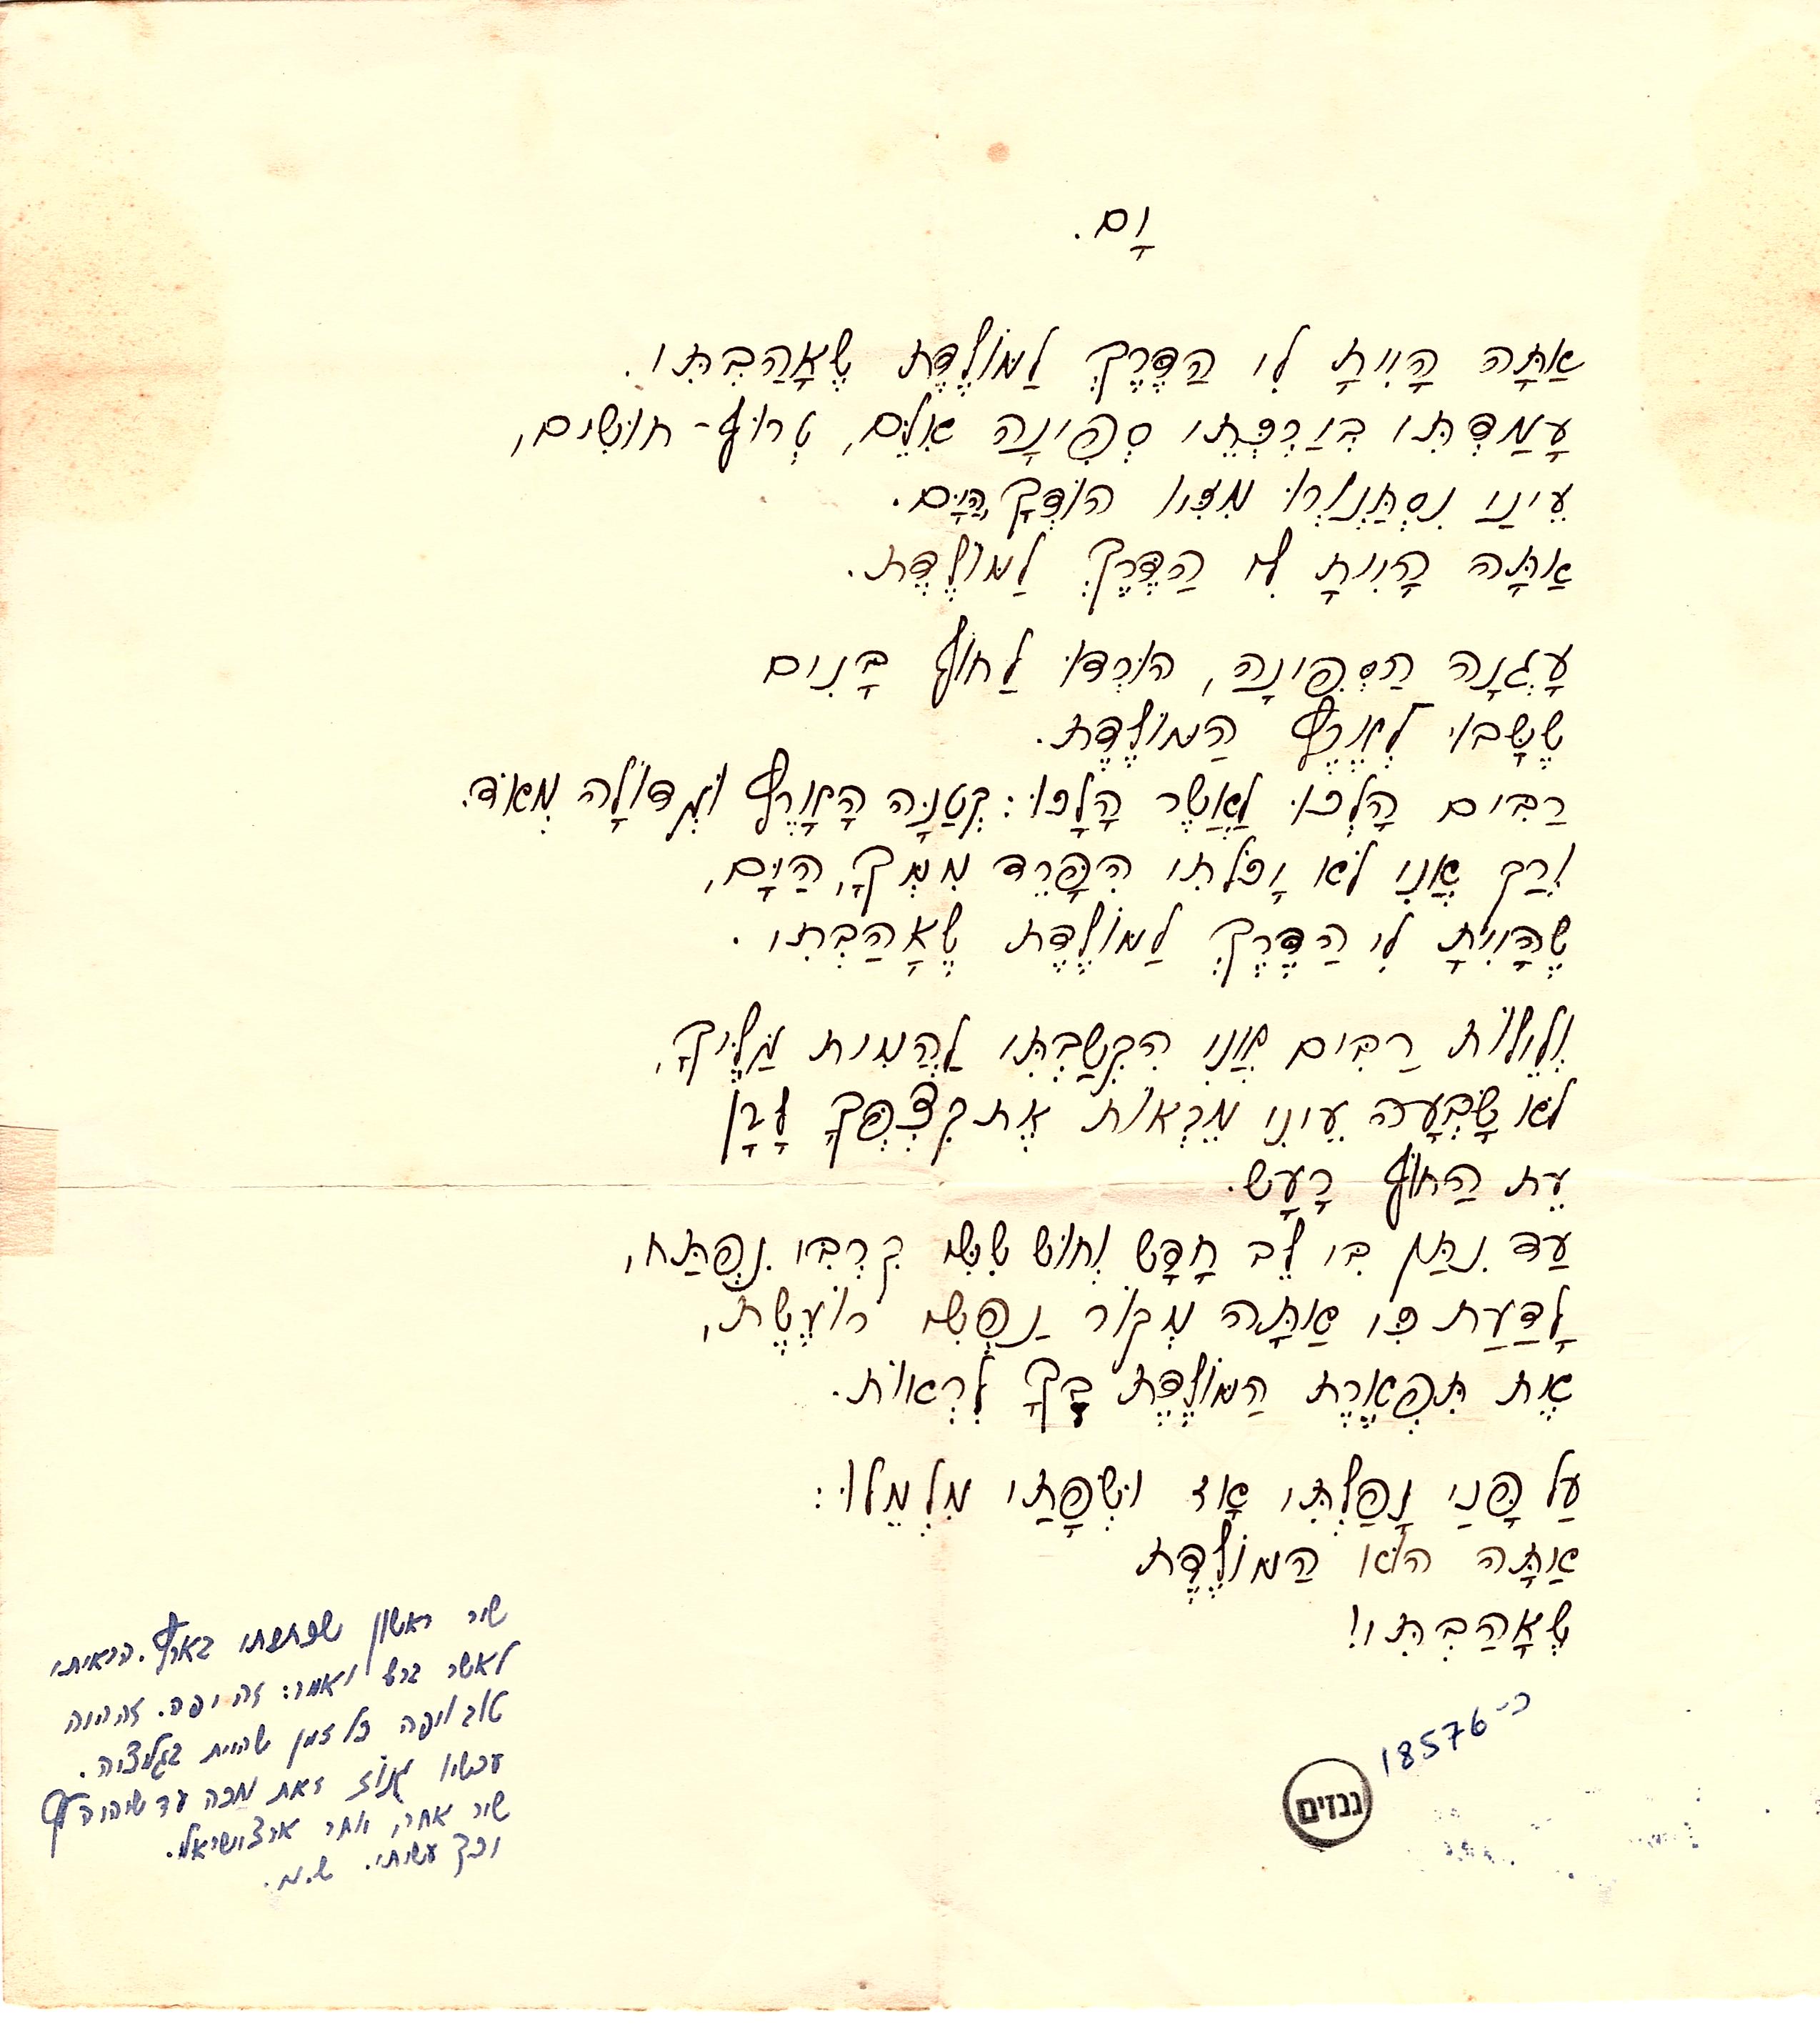 יָם.
אַתָּה הָיִיתָ לִי הַדֶּרֶךְ לַמּוֹלֶדֶת שֶׁאָהַבְתִּי.
עָמַדְתִּי בְּיַרְכְּתֵי סְפִינָה אִלֵּם, טְרוּף-חוּשִׁים,
עֵינַי נִסְתַּנְוְרוּ מִזִּיו הוֹדְךָ, הַיָּם.
אַתָּה הָיִיתָ לִי הַדֶּרֶךְ לַמּוֹלֶדֶת.
עָגְנָה הַסְּפִינָה, הוּרְדוּ לַחוֹף בָּנִים
שֶׁשָּׁבוּ לְאֶרֶץ הַמּוֹלֶדֶת.
רַבִּים הָלְכוּ לַאֲשֶׁר הָלָכוּ: קְטַנָּה הָאָרֶץ וּגְדוֹלָה מְאוֹד.
וְרַק אֲנִי לֹא יָכֹלְתִּי הִפָּרֵד מִמְּךָ, הַיָּם,
שֶׁהָיִיתָ לִי הַדֶּרֶךְ לַמּוֹלֶדֶת שֶׁאָהַבְתִּי.
וְלֵילוֹת רַבִּים אֲנִי הִקְשַׁבְתִּי לַהֲמִית גַּלֶּיךָ,
לֹא שָׂבְעָה עֵינִי מֵרְאוֹת אֶת קִצְפְּךָ לָבָן
עֵת הַחוֹף רָעָשׁ.
עַד נִתַּן בִּי לֵב חָדָשׁ וְחוּשׁ שִׁשִּׁי קִרְבִּי נִפְתַּח,
לָדַעַת כִּי אַתָּה מְקוֹר נַפְשִׁי רוֹעֶשֶׁת,
אֶת תִּפְאֶרֶת הַמּוֹלֶדֶת בְּךָ לִרְאוֹת.
עַל פָּנַי נָפַלְתִּי אָז וּשְׂפָתַי מִלְמֵלוּ:
אַתָּה הוּא הַמּוֹלֶדֶת
שֶׁאָהַבְתִּי!
שיר ראשון שכתבתי בארץ. הראיתי
לאשר ברש ואמר: זה יפה. זה היה
טוב ויפה כל זמן שהיית בגליציה.
עכשיו גנוז זאת מכה עד שיהיה לך
שיר אחר, יותר ארצישראלי.
וכך עשיתי. ש.מ.
כ-18576
גנזים